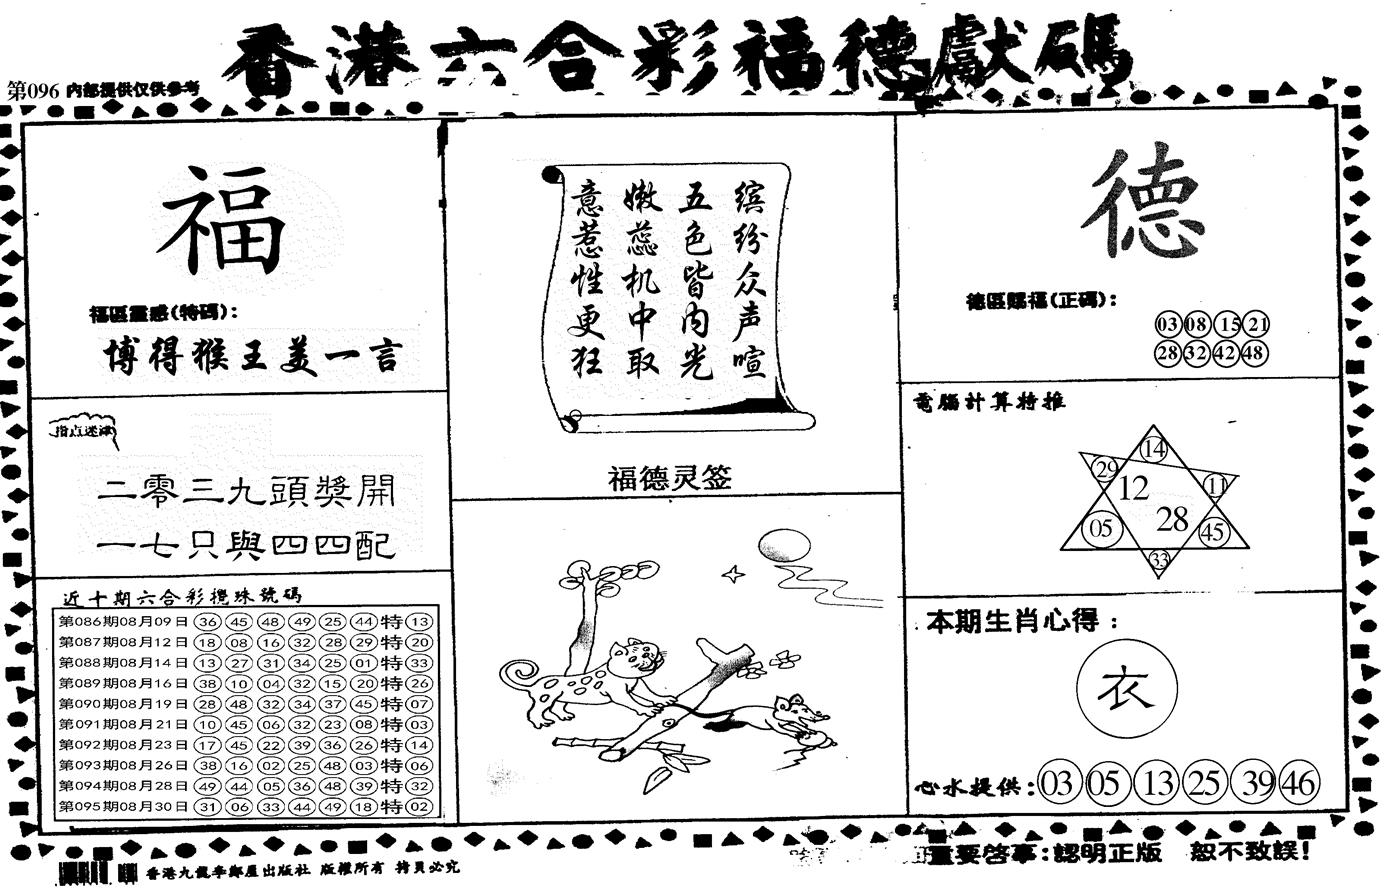 香港六合彩福德獻碼
第096 内部提供仅供参考
福
福區靈感(特碼):
博得猴王美一言
指点迷津
二零三九頭獎開
一七只與四四配
近十期六合彩攪珠號碼
第086期08月09日 36 45 48 49 25 44 特 13
第087期08月12日 18 08 16 32 28 29 特 20
第088期08月14日 13 27 31 34 25 01 特 33
第089期08月16日 38 10 04 32 15 20 特 26
第090期08月19日 28 48 32 34 37 45 特 07
第091期08月21日 10 45 06 32 23 08 特 03
第092期08月23日 17 45 22 39 36 26 特 14
第093期08月26日 38 16 02 25 48 03 特 06
第094期08月28日 49 44 05 36 48 39 特 32
第095期08月30日 31 06 33 44 49 18 特 02
缤纷众声喧
五色皆内光
嫩蕊机中取
意惹性更狂
福德灵签
德
德區賜福(正碼):
03 08 15 21
28 32 42 48
電腦計算特推
14
29 11
12
28
05 45
33
本期生肖心得:
衣
心水提供:03 05 13 25 39 46
重要啓事:認明正版 恕不致誤!
香港九龍李鄭屋出版社 版權所有 拷貝必究